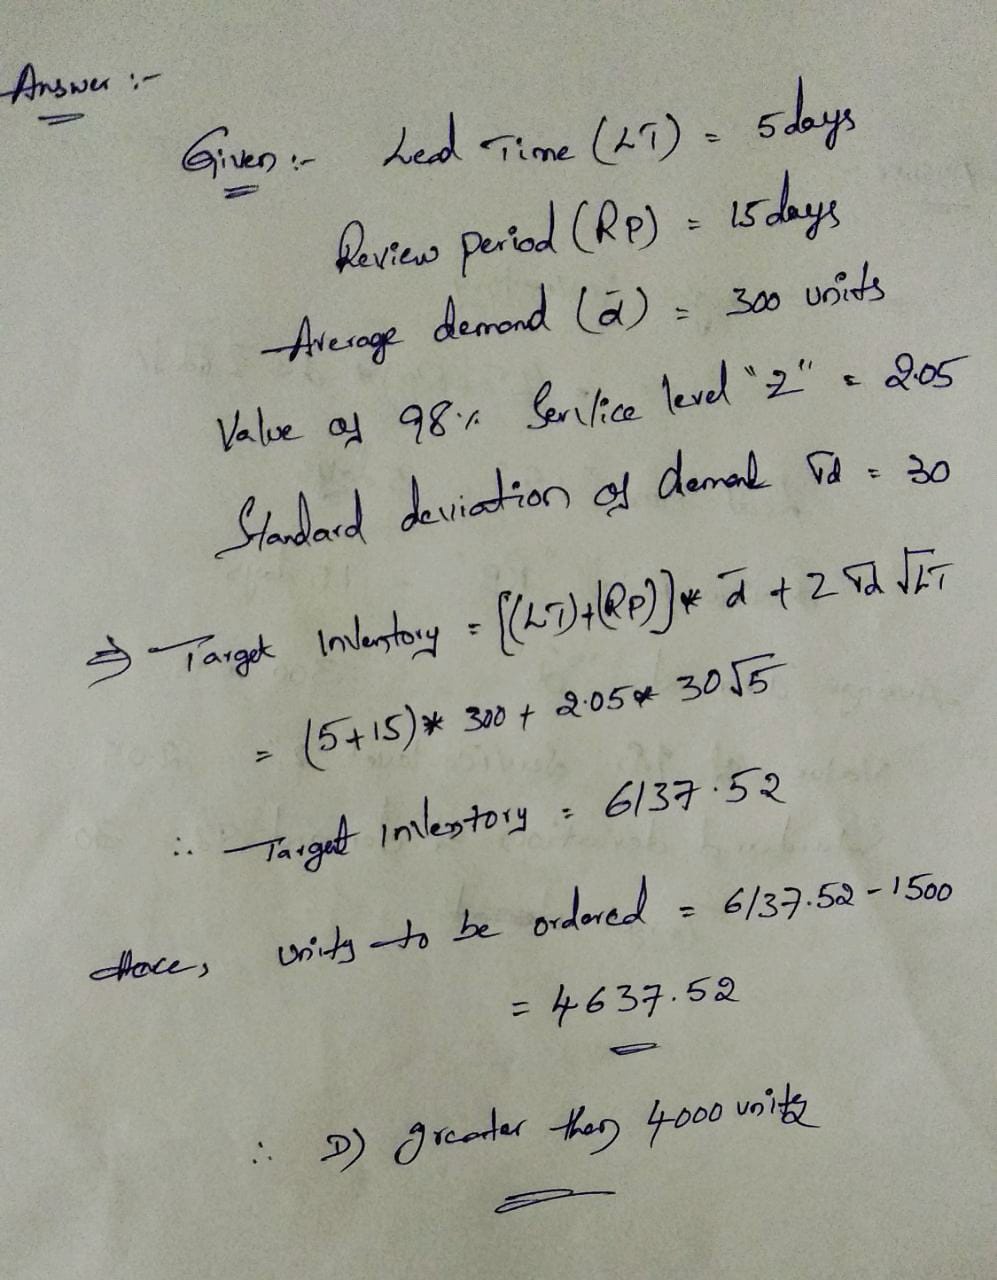 Answer :-
Given :- Lead Time (LT) = 5 days
Review period (RP) = 15 days
Average demand (d̄) = 300 units
Value of 98% Service level "Z" = 2.05
Standard deviation of demand σd = 30
⇒ Target Inventory = [(LT)+(RP)] * d̄ + Z σd √LT
= (5+15) * 300 + 2.05 * 30√5
∴ Target inventory = 6137.52
Hence, units to be ordered = 6137.52 - 1500
= 4637.52
∴ D) greater than 4000 units